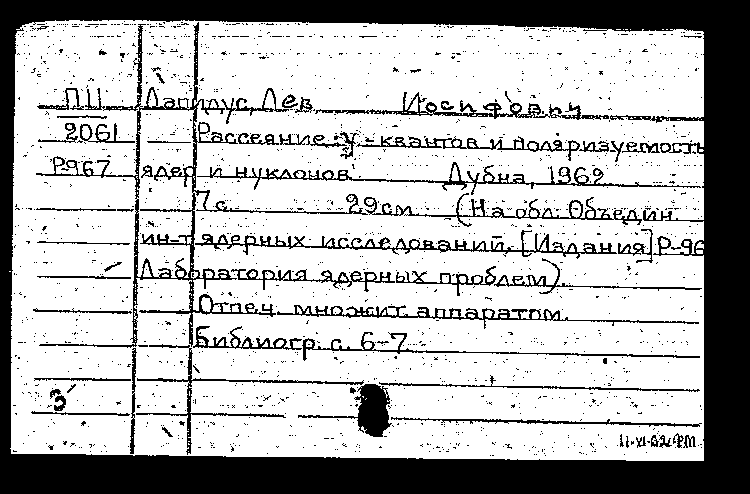 ПII Лапидус, Лев Иосифович
2061 Рассеяние γ-квантов и поляризуемость
Р-967 ядер и нуклонов. Дубна, 1962
7 с. 29 см. (На обл: Объедин.
ин-т ядерных исследований, [Издания] Р-96
Лаборатория ядерных проблем).
Отпеч. множит. аппаратом.
Библиогр. с. 6-7
3